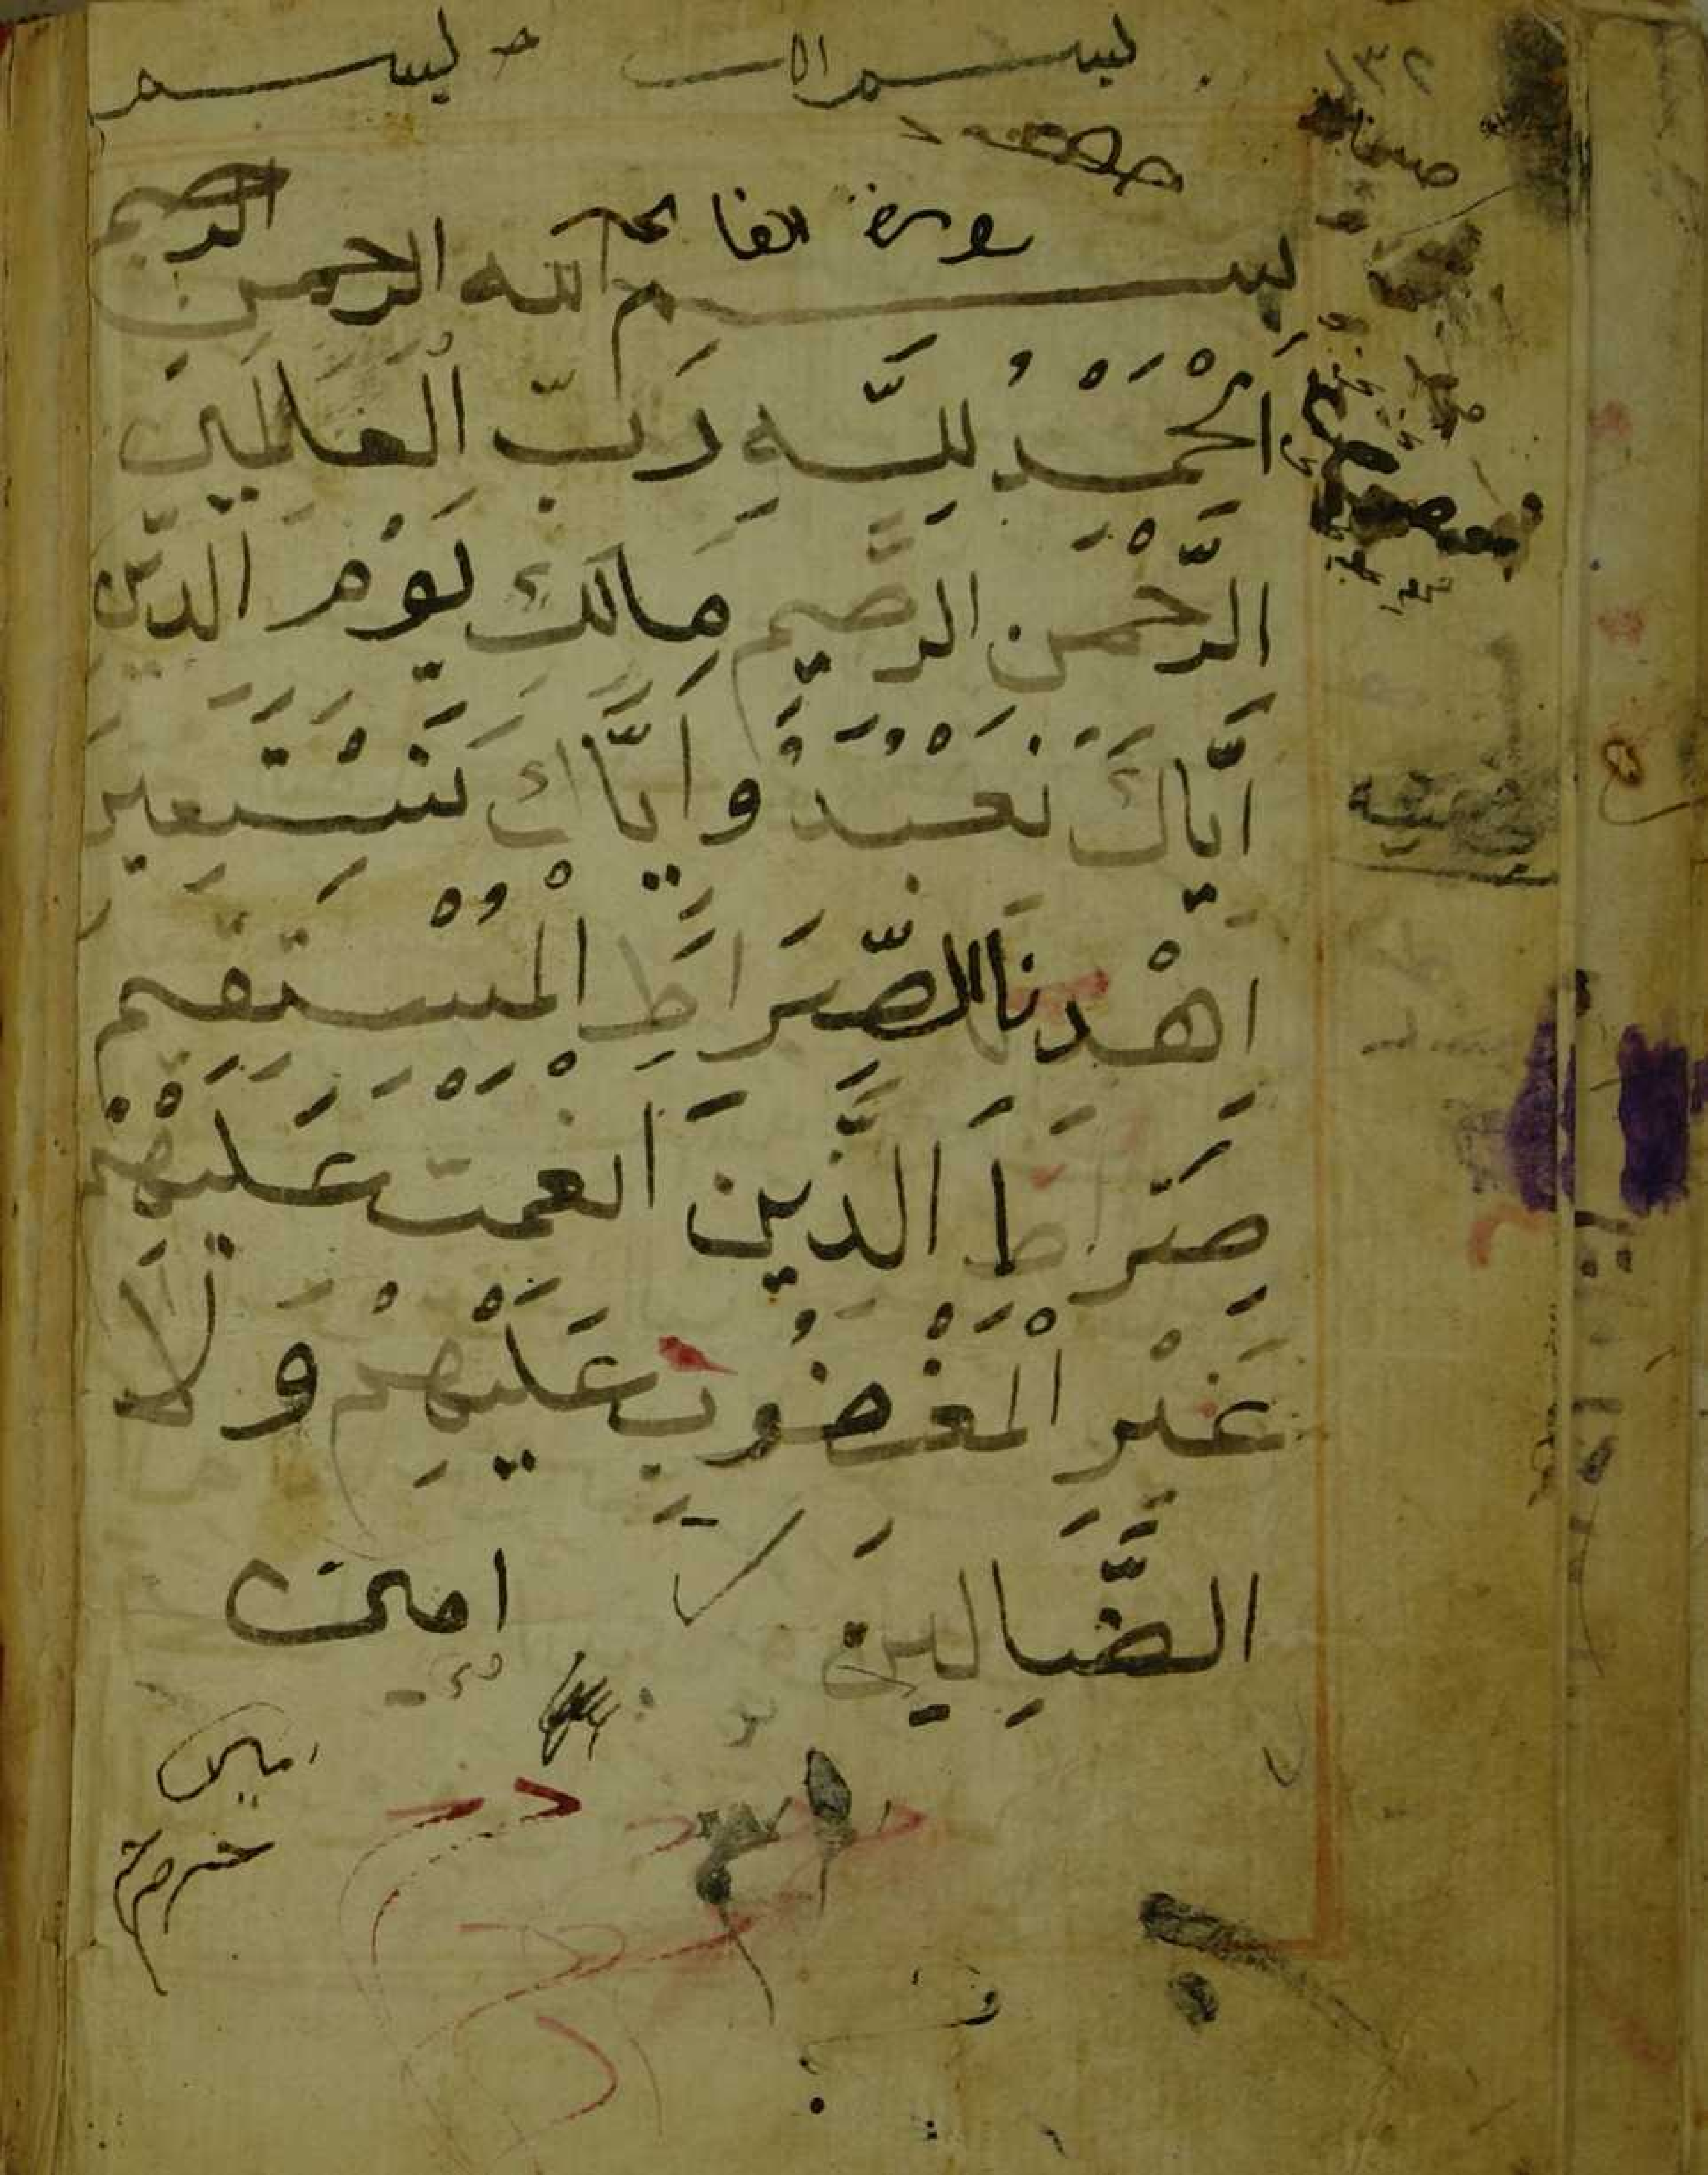 بسم الله بسم
١٣٢
سورة الفاتحة
بسم الله الرحمن الرحيم
اَلْحَمْدُ لِلَّهِ رَبِّ الْعَالَمِينَ
الرَّحْمَنِ الرَّحِيمِ مَالِكِ يَوْمِ الدِّينِ
اِيَّاكَ نَعْبُدُ وَاِيَّاكَ نَسْتَعِينَ
اِهْدِنَا الصِّرَاطَ الْمُسْتَقِيمَ
صِرَاطَ الَّذِينَ اَنْعَمْتَ عَلَيْهِمْ
غَيْرِ الْمَغْضُوبِ عَلَيْهِمْ وَلَا
الضَّالِّينَ امين
امين